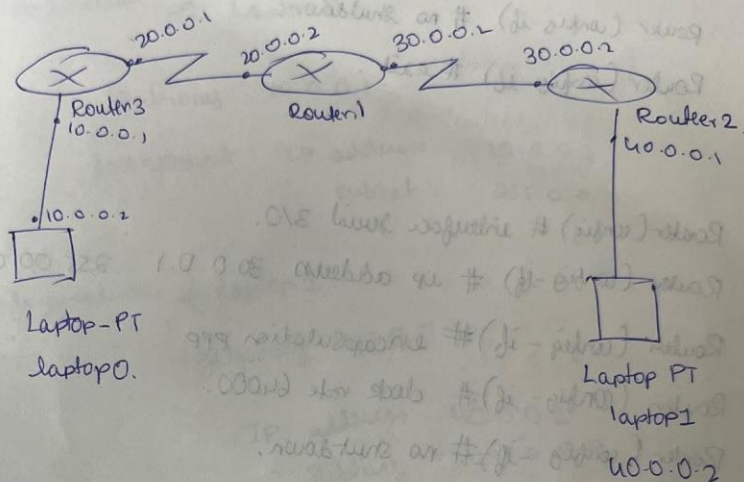 20.0.0.1
20.0.0.2
30.0.0.2
30.0.0.2
Router3
Router1
Routeer2.
10.0.0.1
40.0.0.1
10.0.0.2
Laptop-PT
laptop0.
Laptop PT
laptop1
40.0.0.2